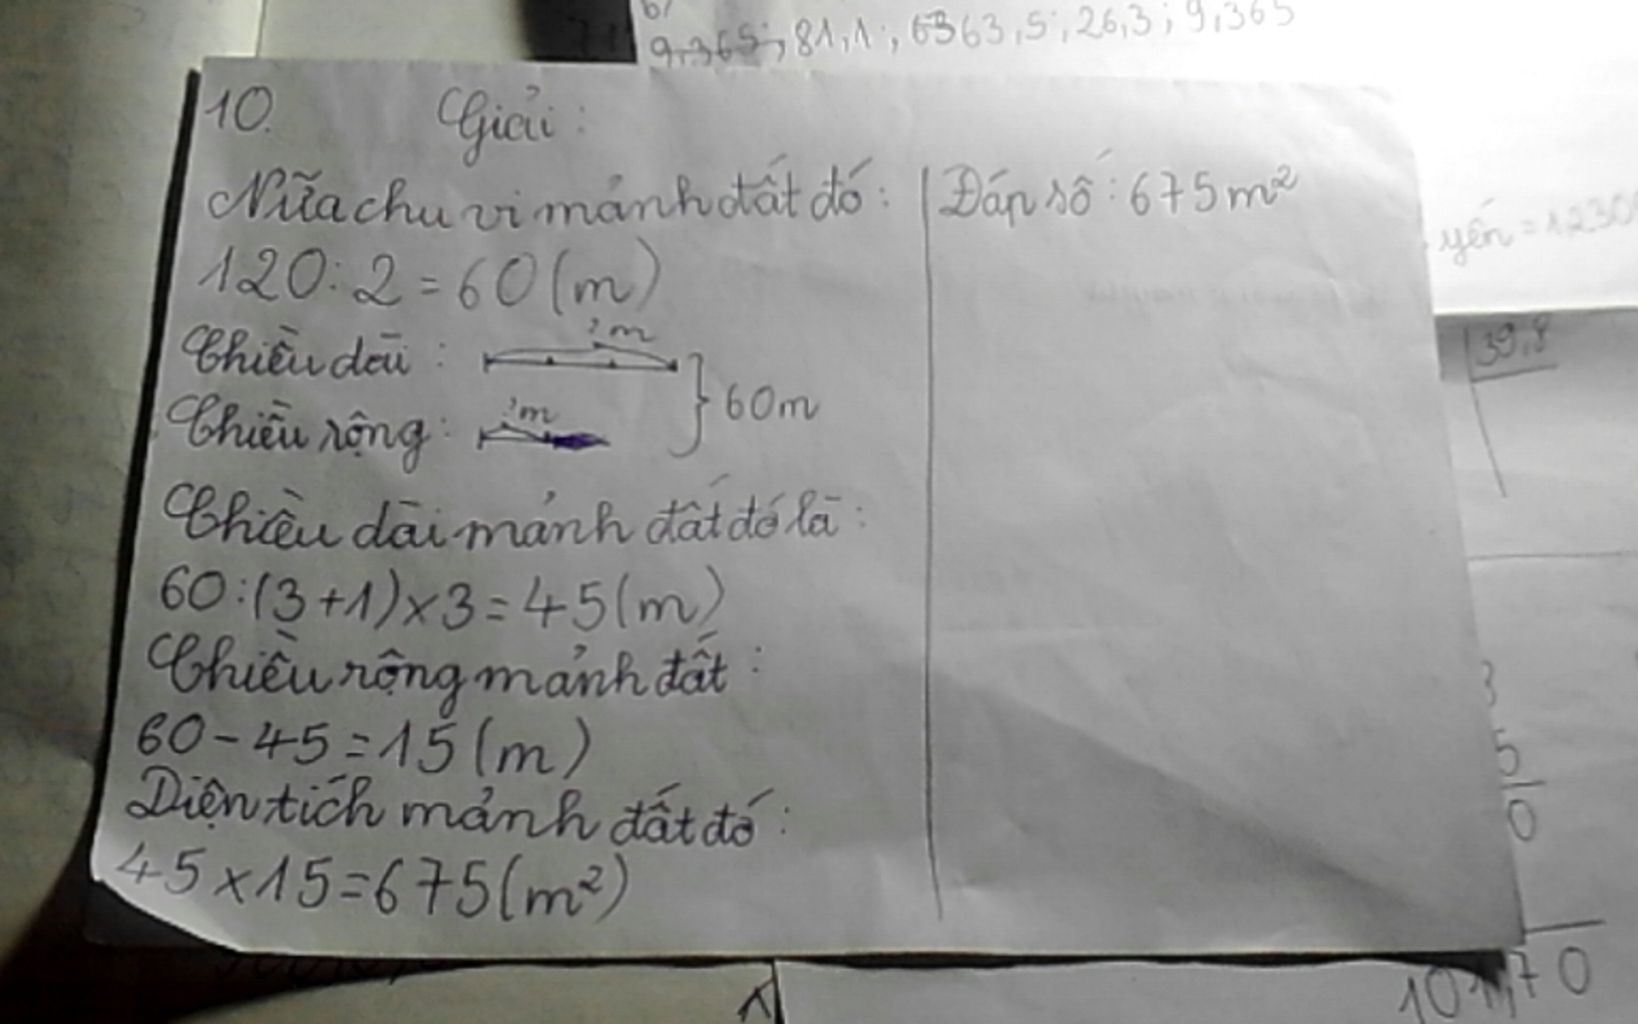 b/
9,365; 81,1; 6363,5; 26,3; 9,365
10. Giải:
Nữa chu vi mảnh đất đó:
120 : 2 = 60 (m)
Chiều dài : ? m
Chiều rộng : ? m
60m
Chiều dài mảnh đất đó là :
60 : (3 + 1) x 3 = 45 (m)
Chiều rộng mảnh đất :
60 - 45 = 15 (m)
Diện tích mảnh đất đó :
45 x 15 = 675 (m²)
Đáp số : 675 m²
39,8
3
5
0